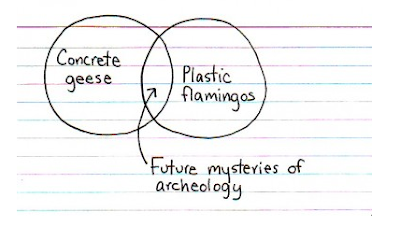 Concrete
geese
Plastic
flamingos
Future mysteries of
archeology